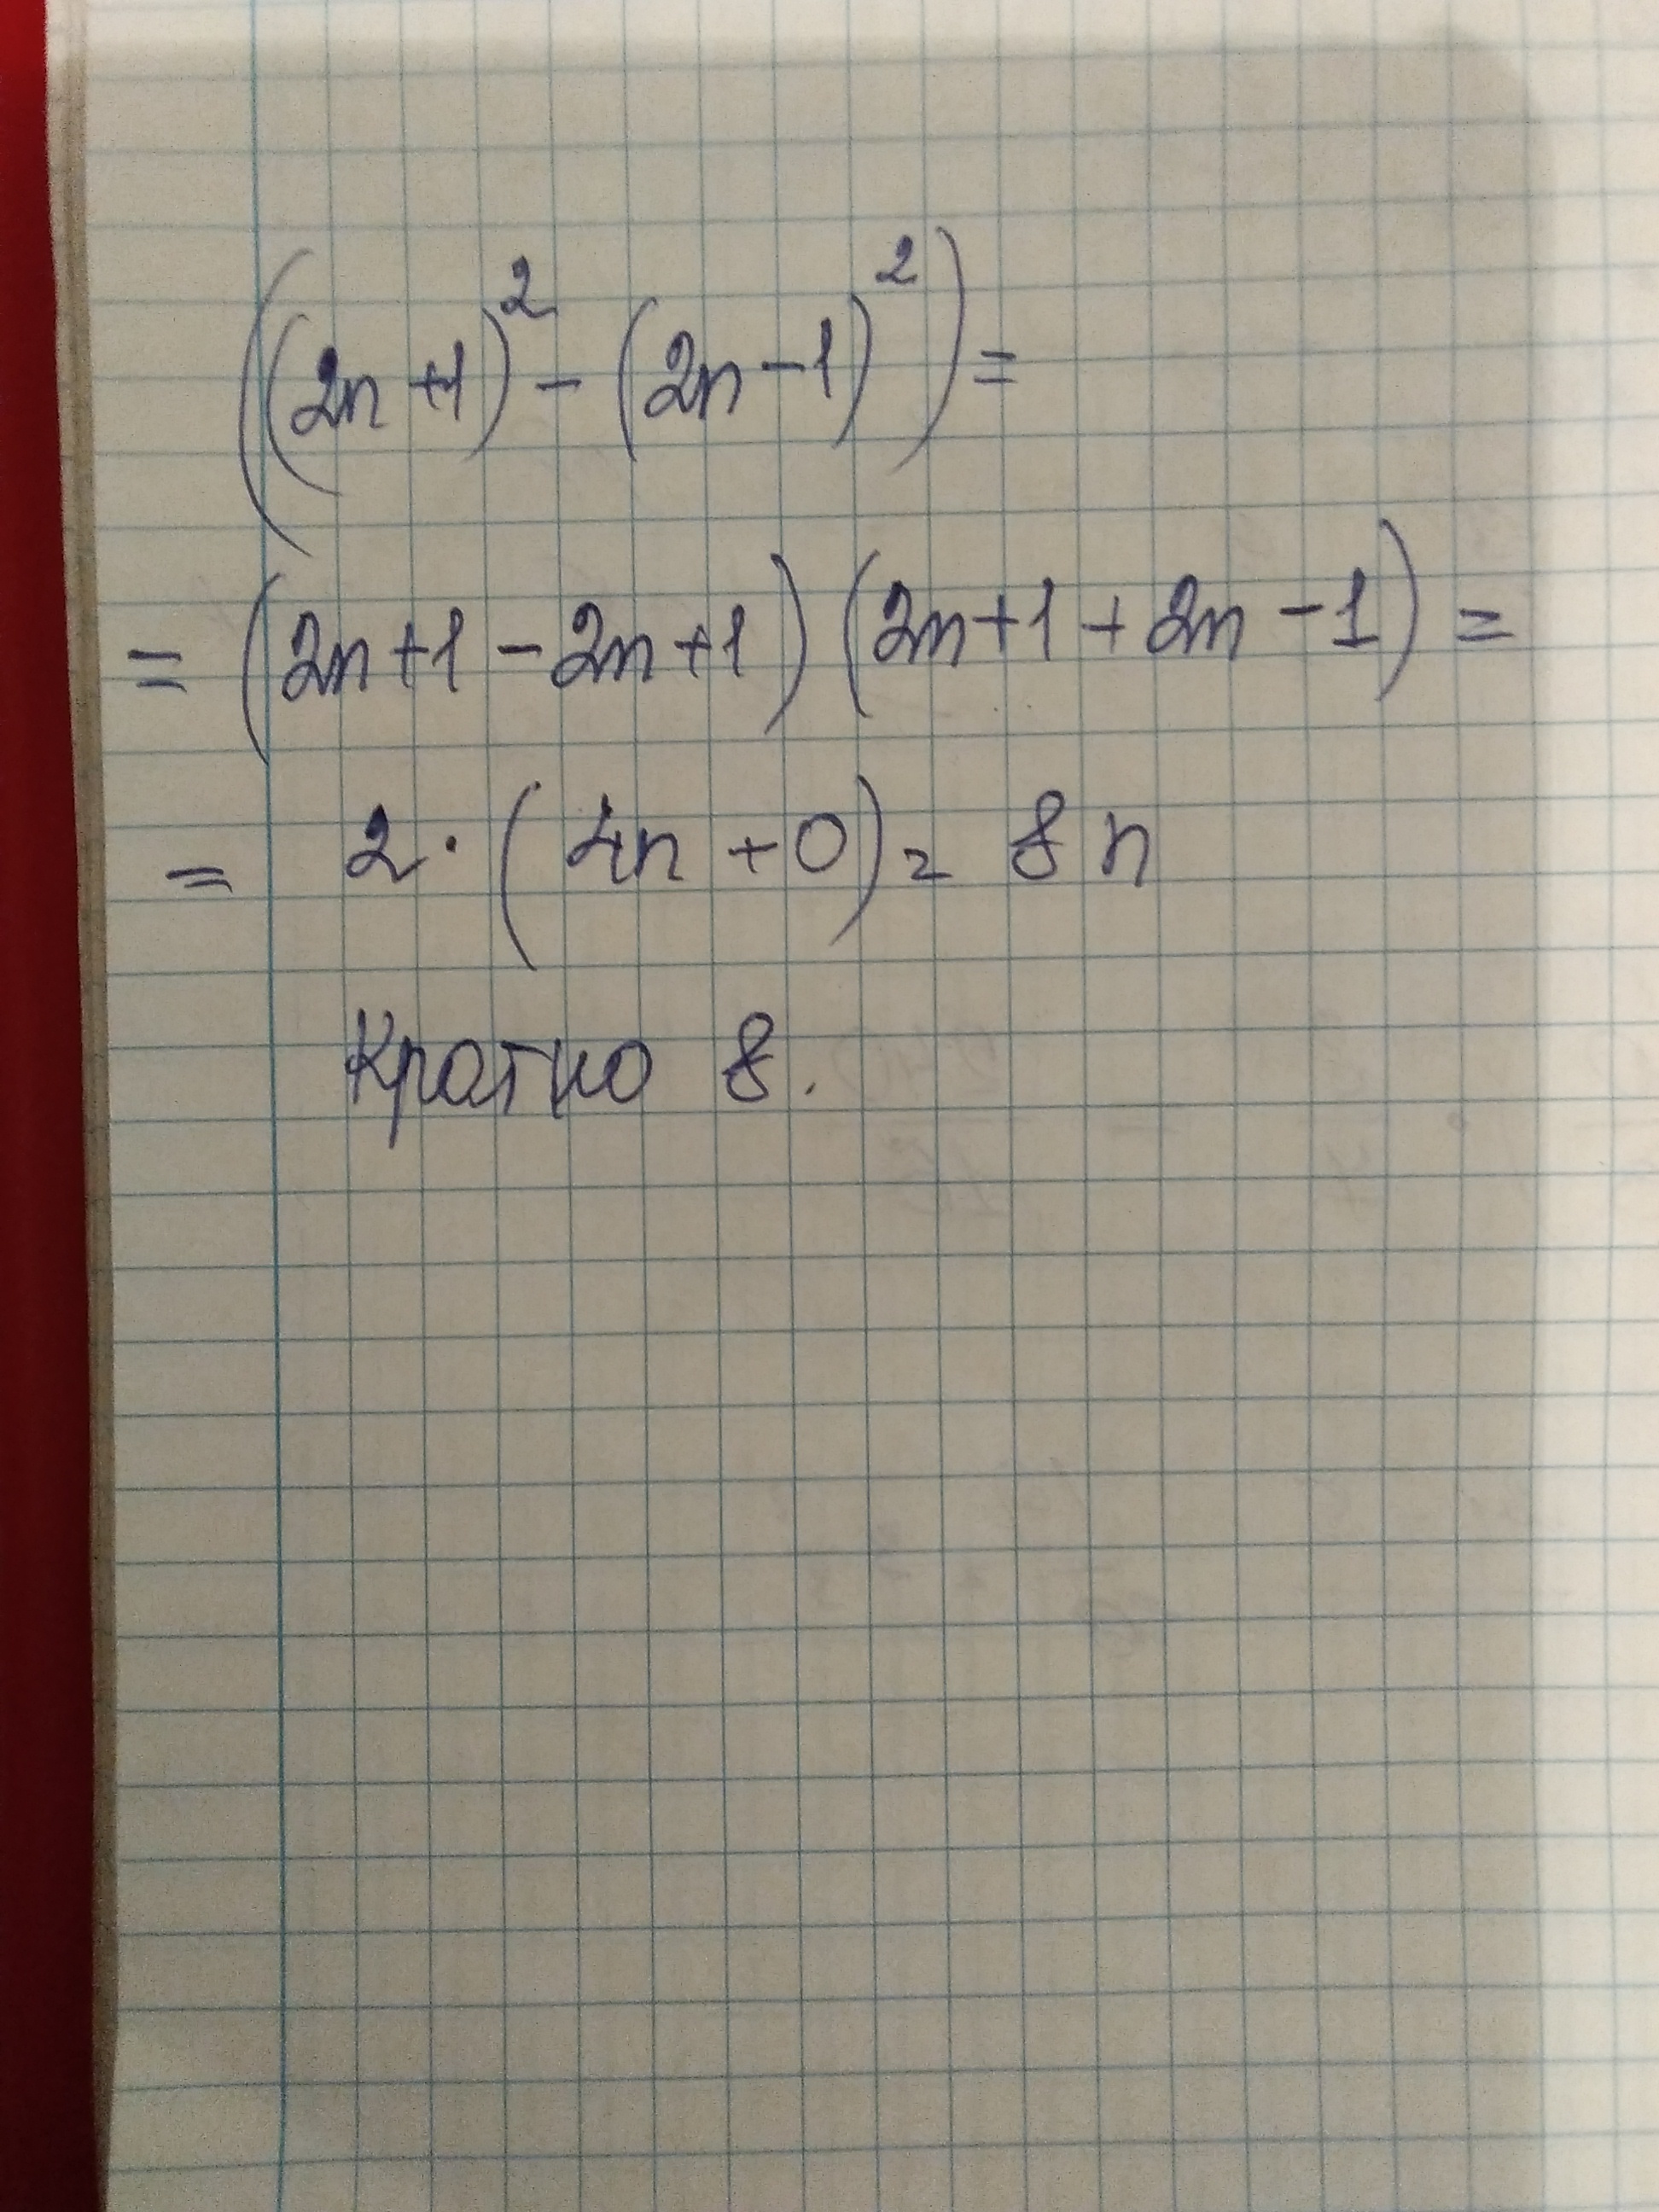 ((2n+1)² - (2n-1)²) =
= (2n+1-2n+1)(2n+1+2n-1) =
= 2·(4n+0) = 8n
Кратно 8.